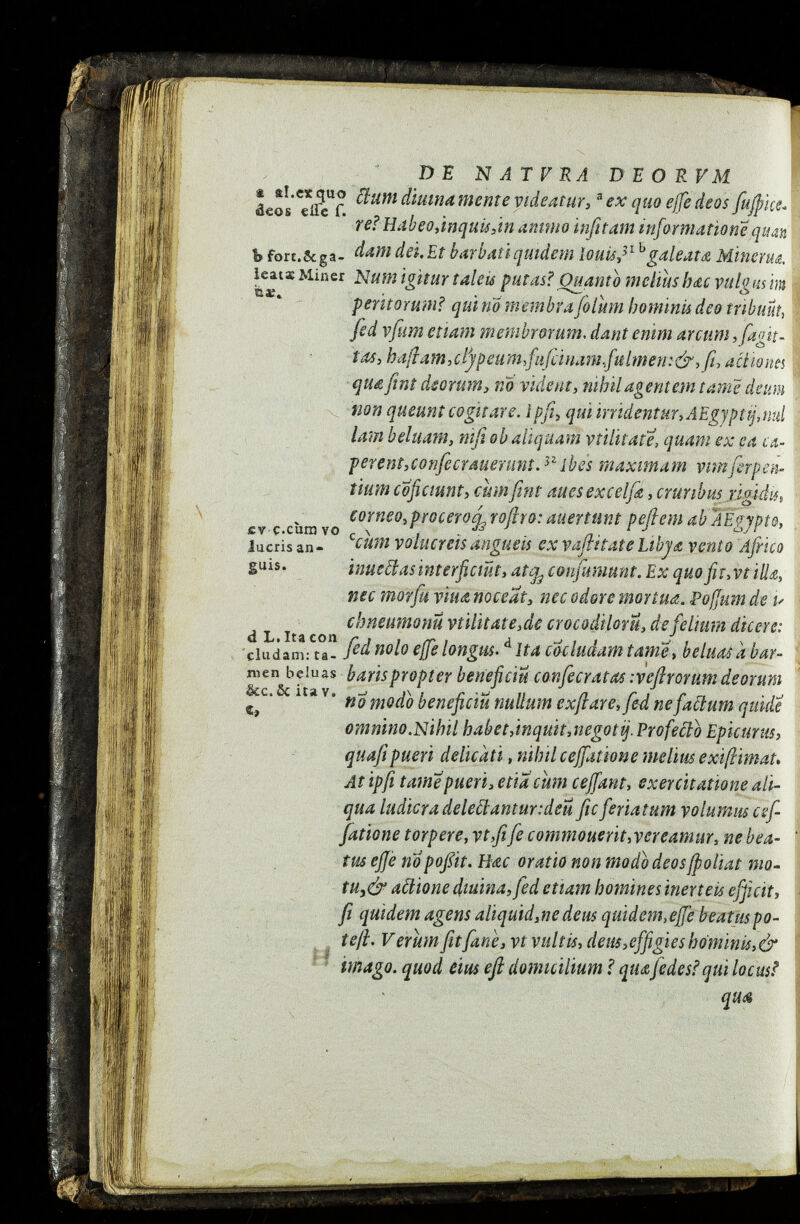 DE NATVRA DEORVM
a al. ex quo
deos esse s.
b fort. & ga-
leatæ Miner
uæ.
c v c. cùm vo
lucris an-
guis.
d L. Ita con
cludam: ta-
men beluas
&c. & ita v.
c,
ctum diuina mente videatur, ª ex quo esse deos suspice-
re? Habeo, inquis, in animo insitam informationē quan
dam dei. Et barbati quidem Iouis,³¹ ᵇ galeatæ Mineruæ.
Num igitur taleis putas? Quantò melius hæc vulgus im
peritorum? qui nō membra solùm hominis deo tribuūt,
sed vsum etiam membrorum. dant enim arcum, sagit-
tas, hastam, clypeum, fuscinam, fulmen: &, si, actiones
quæ sint deorum, nō vident, nihil agentem tamē deum
non queunt cogitare. Ipsi, qui irridentur, AEgyptij, nul
lam beluam, nisi ob aliquam vtilitatē, quam ex ea ca-
perent, consecrauerunt. ³² Ibes maximam vim serpen-
tium cōficiunt, cùm sint aues excelsæ, cruribus rigidis,
corneo, proceroq́; rostro: auertunt pestem ab AEgypto,
ᶜcùm volucreis angueis ex vastitate Libyæ vento Africo
inuectas interficiūt, atq; consumunt. Ex quo fit, vt illæ,
nec morsu viuæ noceāt, nec odore mortuæ. Possum de i-
chneumonū vtilitate, de crocodilorū, de felium dicere:
sed nolo esse longus. ᵈ Ita cōcludam tamē, beluas à bar-
baris propter beneficiū consecratas: vestrorum deorum
nō modò beneficiū nullum exstare, sed ne factum quidē
omnino. Nihil habet, inquit, negotij. Profectò Epicurus,
quasi pueri delicati, nihil cessatione melius existimat.
At ipsi tamē pueri, etiā cùm cessant, exercitatione ali-
qua ludicra delectantur: deū sic feriatum volumus ces-
satione torpere, vt, si se commouerit, vereamur, ne bea-
tus esse nō poßit. Hæc oratio non modò deos spoliat mo-
tu, & actione diuina, sed etiam homines inerteis efficit,
si quidem agens aliquid, ne deus quidem, esse beatus po-
test. Verùm sit sanè, vt vultis, deus, effigies hominis, &
imago. quod eius est domicilium? quæ sedes? qui locus?
quæ